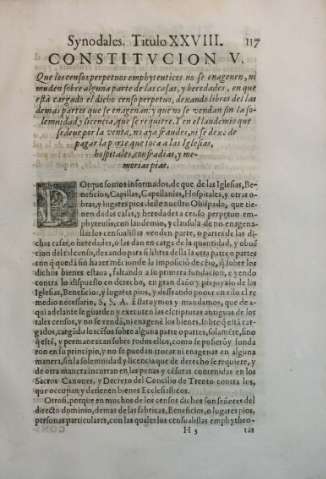 Synodales. Titulo XXVIII. 117
CONSTITVCION V.
Que los censos perpetuos emphyteuticos no se enagenen, ni
muden sobre alguna parte de las casas, y heredades, en que
está cargado el dicho censo perpetuo, dexando libres de las
demas partes que se enagenan: y que no se vendan sin la so-
lemnidad, y licencia, que se requiere. Y en el laudemio que
se deue por la venta, no aya fraudes, ni se dexe de
pagar la parte que toca a las Iglesias,
hospitales, confradias, y me-
morias pias.
POrque somos informados, de que de las Iglesias, Be-
neficios, Capillas, Capellanias, Hospitales, y otras
obras, y lugares pios deste nuestro Obispado, que tie-
nen dadas casas, y heredades a censo perpetuo em-
phyteutico, con laudemio, y clausula de no enagenar
los censualistas venden parte, o partes de las di-
chas casas, o heredades, o las dan en carga de la quantidad, y
del censo, dexando para si libre de la otra parte, o partes
se haya hecho la imposicion del censo, sobre los
dichos bienes estaua, faltando a la primera fundacion, y yendo
contra lo dispuesto en derecho, en gran daño, y perjuyzio de las
Iglesias, Beneficios, y lugares pios, y desseando poner en ello el re-
medio necessario, S. S. A. Estatuymos y mandamos, que de a-
qui adelante se guarden y executen las escripturas antiguas de los
tales censos, y no se vendan, ni enagenen los bienes, sobre que está car-
gados, cargado el censo sobre alguna parte o partes, solamente, sino
que esté, y permanezcan sobre todos ellos, como se puso en su funda-
cion en su principio, y no se puedan trocar ni enagenar en alguna
manera, sin la solemnidad y licencia que de derecho se requiere, y
de otra manera incurran en las penas y censuras contenidas en los
Sacros Canones, y Decreto del Concilio de Trento contra los,
que occupan, y detienen bienes Ecclesiasticos.
Otrosi, porque en muchos de los censos dichos son señores del
directo dominio, demas de las fabricas, Beneficios, o lugares pios,
personas particulares, con las quales los censualistas emphytheo-
H 3 tas